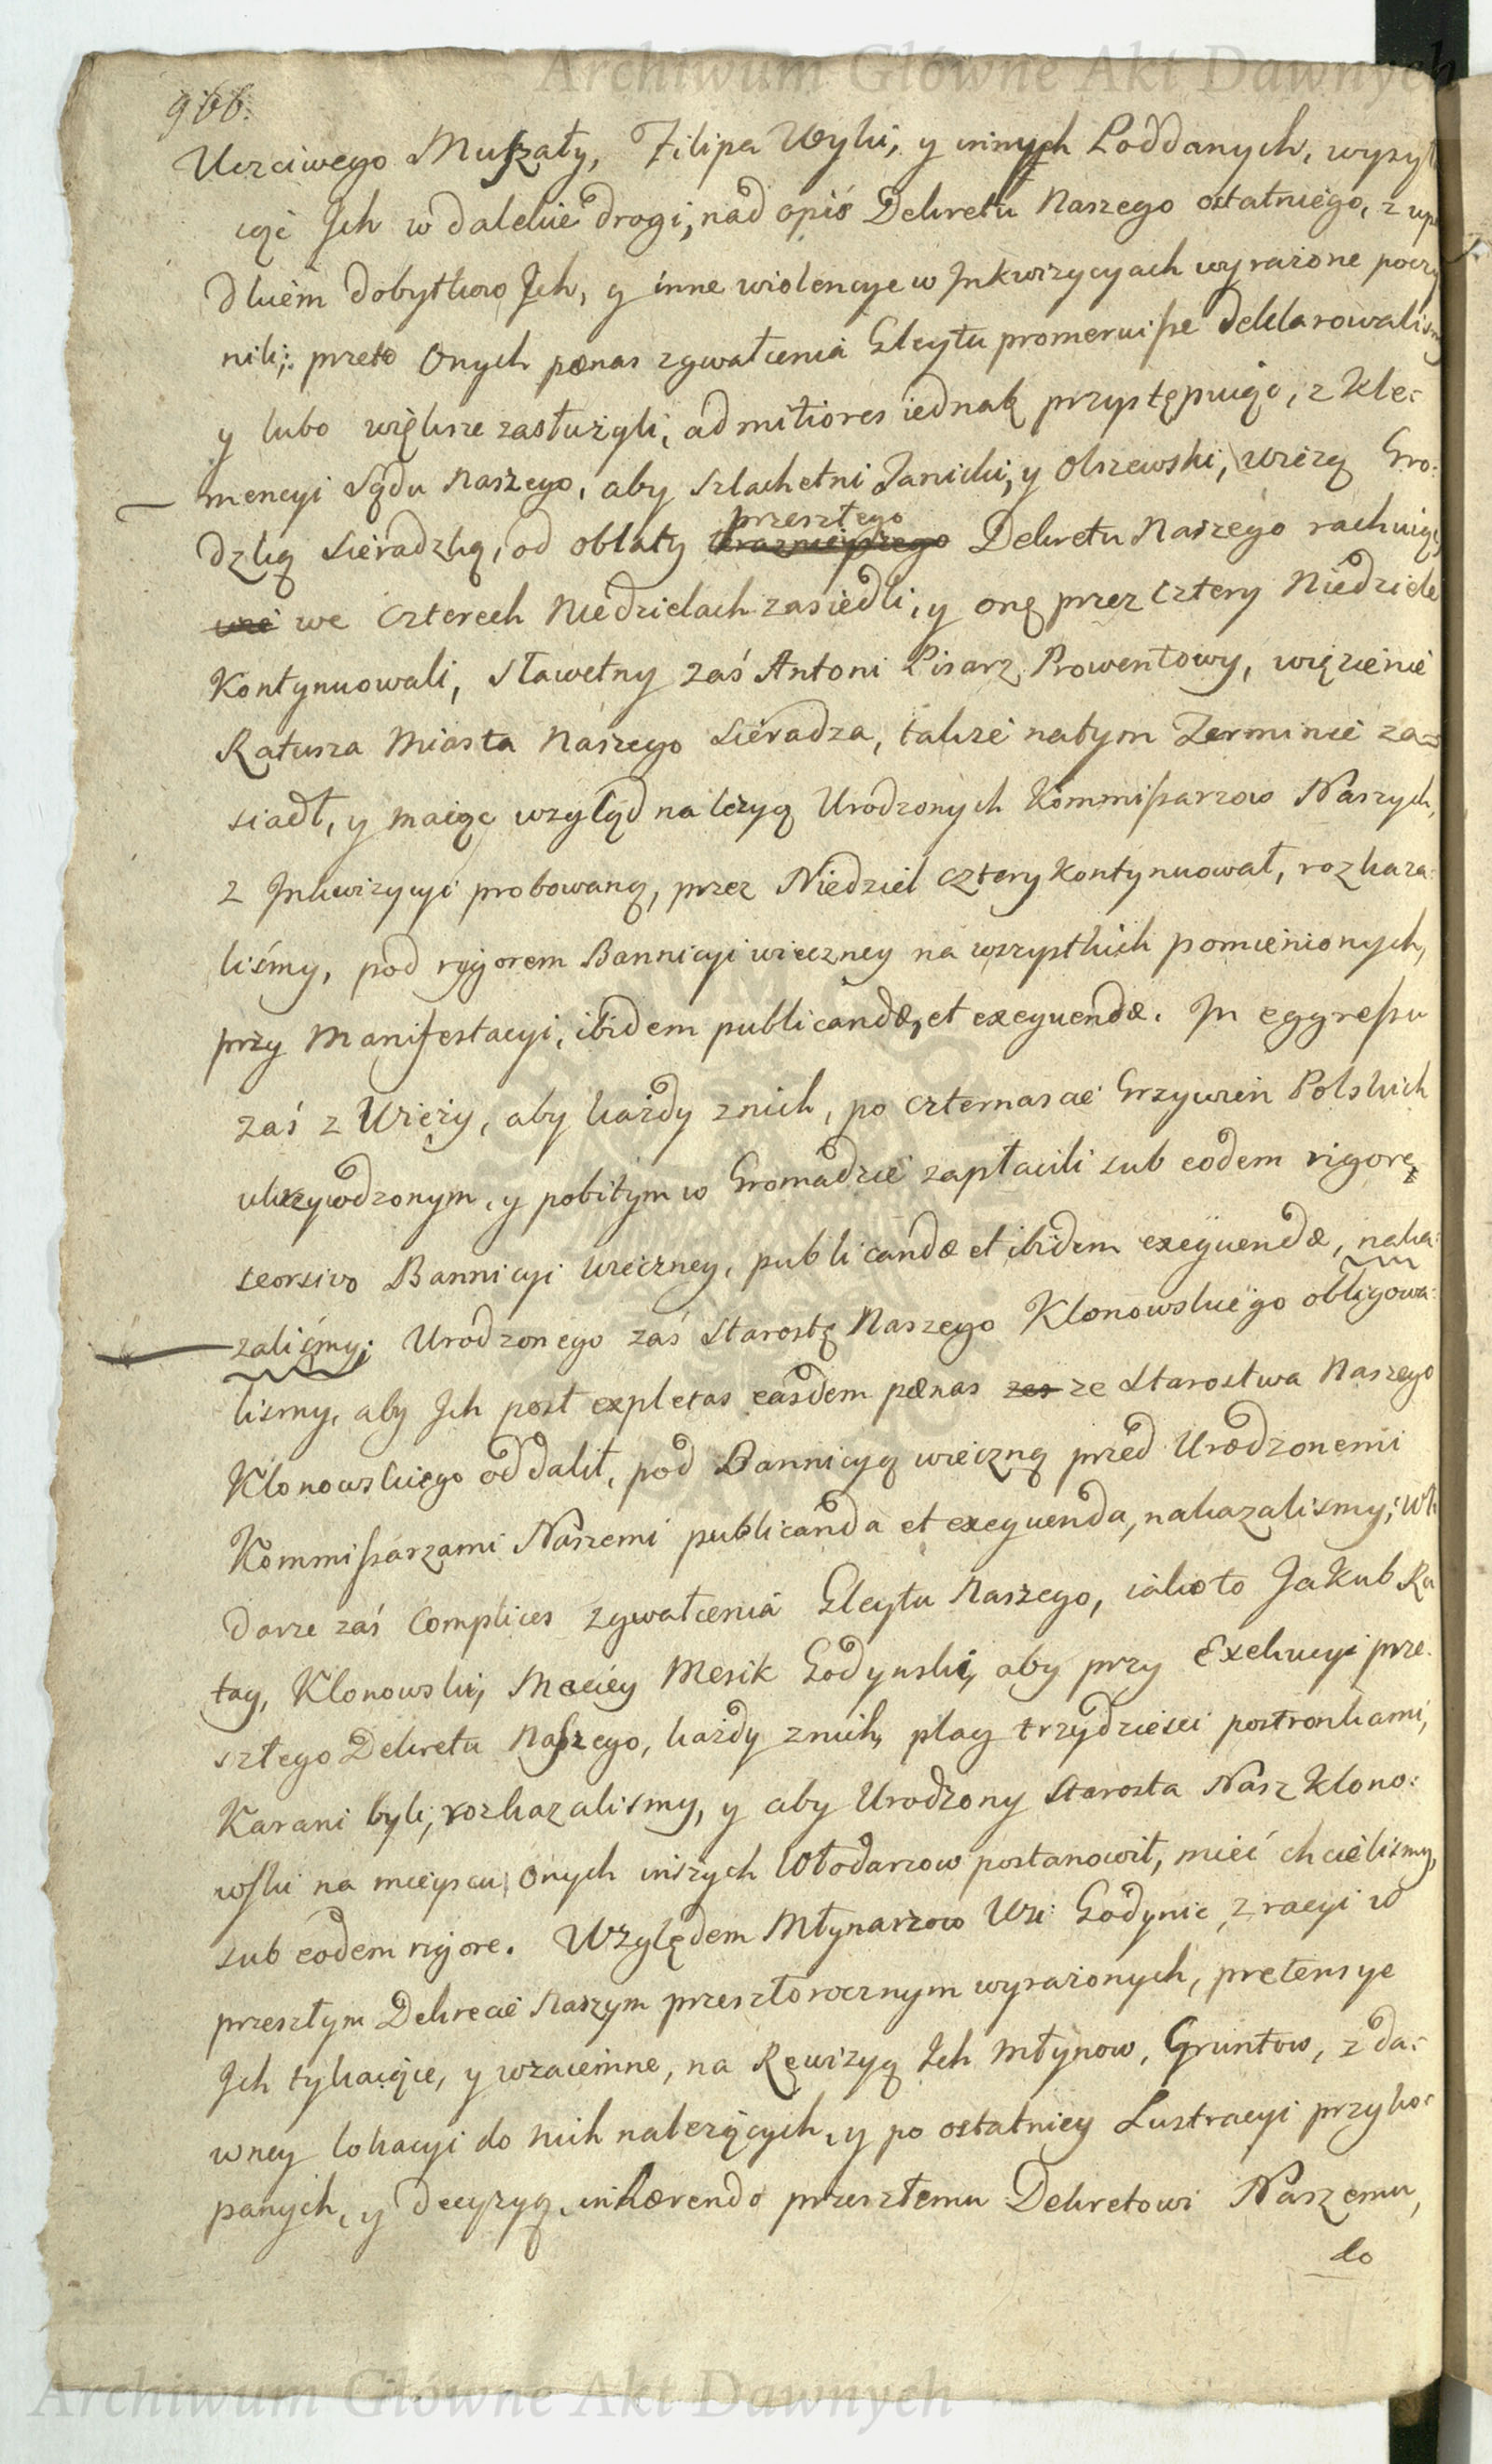 Archiwum Główne Akt Dawnych
966.
Uczciwego Muszały, Filipa Wylii, y innych Poddanych, wysył
iąc Ich w dalekie drogi, nad opis Dekretu Naszego ostatniego, z upa
dkiem dobytkow Ich, y inne wiolencye w Inkwizycyach wyrażone poczy
nili; przeto Onych pœnas zgwałcenia Gleytu promeruisse deklarowaliśmy
y lubo większe zasłużyli, ad mitiores iednak przystępuiąc, z Kle:
mencyi Sądu Naszego, aby Szlachetni Janicki, y Olszewski, Wieżą Gro:
dzką Sieradzką, od oblaty przeszłego Dekretu Naszego rachuiąc,
we czterech Niedzielach zasiedli, y onę przez cztery Niedziele
Kontynuowali, Sławetny zaś Antoni Pisarz Prowentowy, więzienie
Ratusza Miasta Naszego Sieradza, także natym Terminie za=
siadł, y maiąc wzgląd na lezyą Urodzonych Kommissarzow Naszych,
z Inkwizycyi probowaną, przez Niedziel cztery kontynuował, rozkaza:
liśmy, pod rygorem Bannicyi wieczney na wszystkich pomienionych,
przy Manifestacyi, ibidem publicandæ, et exequendæ. In eggressu
zaś z Wieży, aby każdy znich, po czternascie Grzywien Polskich
ukrzywdzonym, y pobitym w Gromadzie zapłacili sub eodem rigore
seorsivo Bannicyi wieczney, publicandæ et ibidem exequendæ, naka:
zaliśmy; Urodzonego zaś Starostę Naszego Klonowskiego obligowa:
lismy, aby Ich post expletas easdem pœnas ze Starostwa Naszego
Klonowskiego oddalił, pod Bannicyą wieczną przed Urodzonemi
Kommissarzami Naszemi publicanda et exequenda, nakazalismy; Wło
darze zaś Complices zgwałcenia Gleytu Naszego, iako to Jakub Ra
tay, Klonowski, Maciey Mesik Godynski, aby przy Exekucyi prze:
szłego Dekretu Naszego, każdy znich, plag trzydzieści postronkami,
Karani byli, rozkazalismy, y aby Urodzony Starosta Nasz Klono:
wski na mieyscu Onych inszych Włodarzow postanowił, mieć chcielismy,
sub eodem rigore. Względem Młynarzow Wsi: Godynic, z racyi w
przeszłym Dekrecie Naszym przeszłorocznym wyrażonych, pretensye
Ich tykaiące, y wzaiemne, na Rewizyą Ich Młynow, Gruntow, z da:
wney lokacyi do nich należących, y po ostatniey Lustracyi przyko:
panych, y decyzyą, inhærendo przeszłemu Dekretowi Naszemu,
do
Archiwum Główne Akt Dawnych